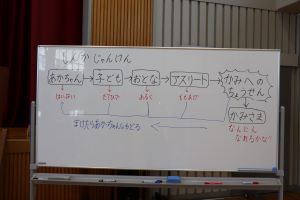 しんかじゃんけん
あかちゃん→子ども→おとな→アスリート→かみへのちょうせん
はいはい
あるく
かみさま
まけたらあかちゃんにもどる
なんにん
なれるかな?